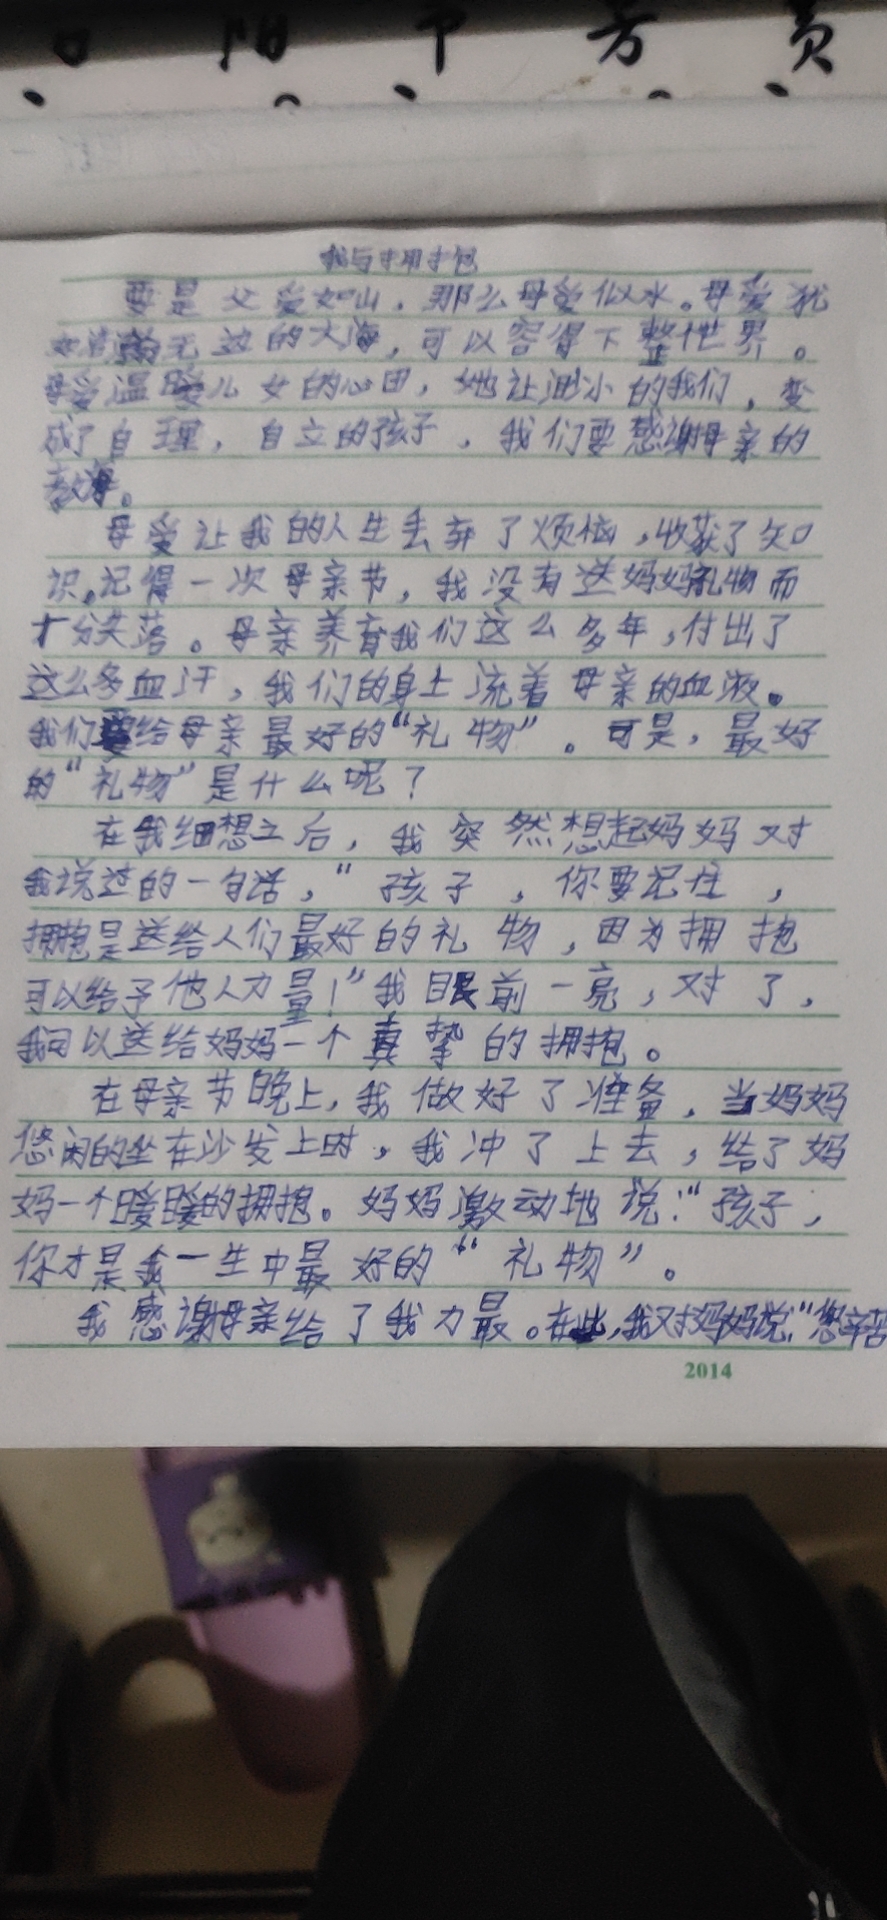 我与拥抱
要是父爱如山，那么母爱似水。母爱犹
如浩瀚无边的大海，可以容得下整世界。
母爱温暖儿女的心田，她让渺小的我们，变
成了自理，自立的孩子，我们要感谢母亲的
教诲。
母爱让我的人生丢弃了烦恼，收获了知
识。记得一次母亲节，我没有送妈妈礼物而
十分失落。母亲养育我们这么多年，付出了
这么多血汗，我们的身上流着母亲的血液。
我们要给母亲最好的“礼物”。可是，最好
的“礼物”是什么呢？
在我细想之后，我突然想起妈妈对
我说过的一句话，“孩子，你要记住，
拥抱是送给人们最好的礼物，因为拥抱
可以给予他人力量！”我眼前一亮，对了，
我可以送给妈妈一个真挚的拥抱。
在母亲节晚上，我做好了准备，当妈妈
悠闲的坐在沙发上时，我冲了上去，给了妈
妈一个暖暖的拥抱。妈妈激动地说：“孩子，
你才是我一生中最好的“礼物”。
我感谢母亲给了我力最。在此，我对妈妈说：“您辛苦
2014